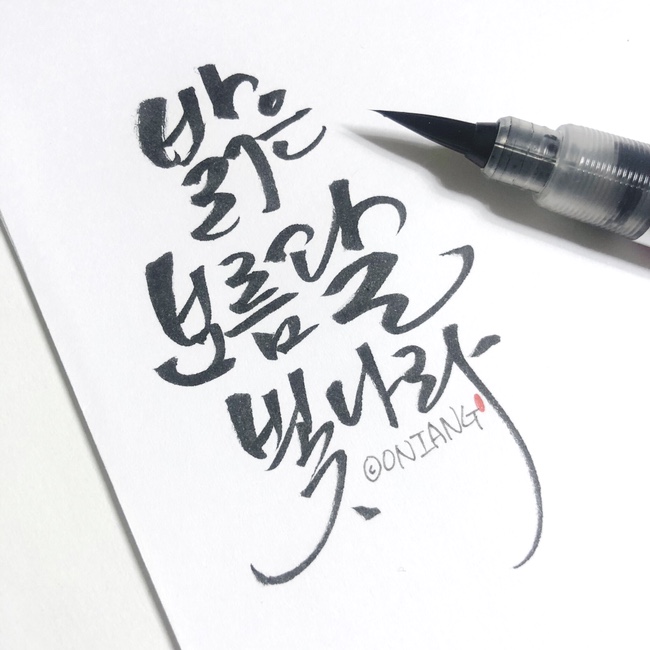 밝은
보름달
빛나라
©ONIANG